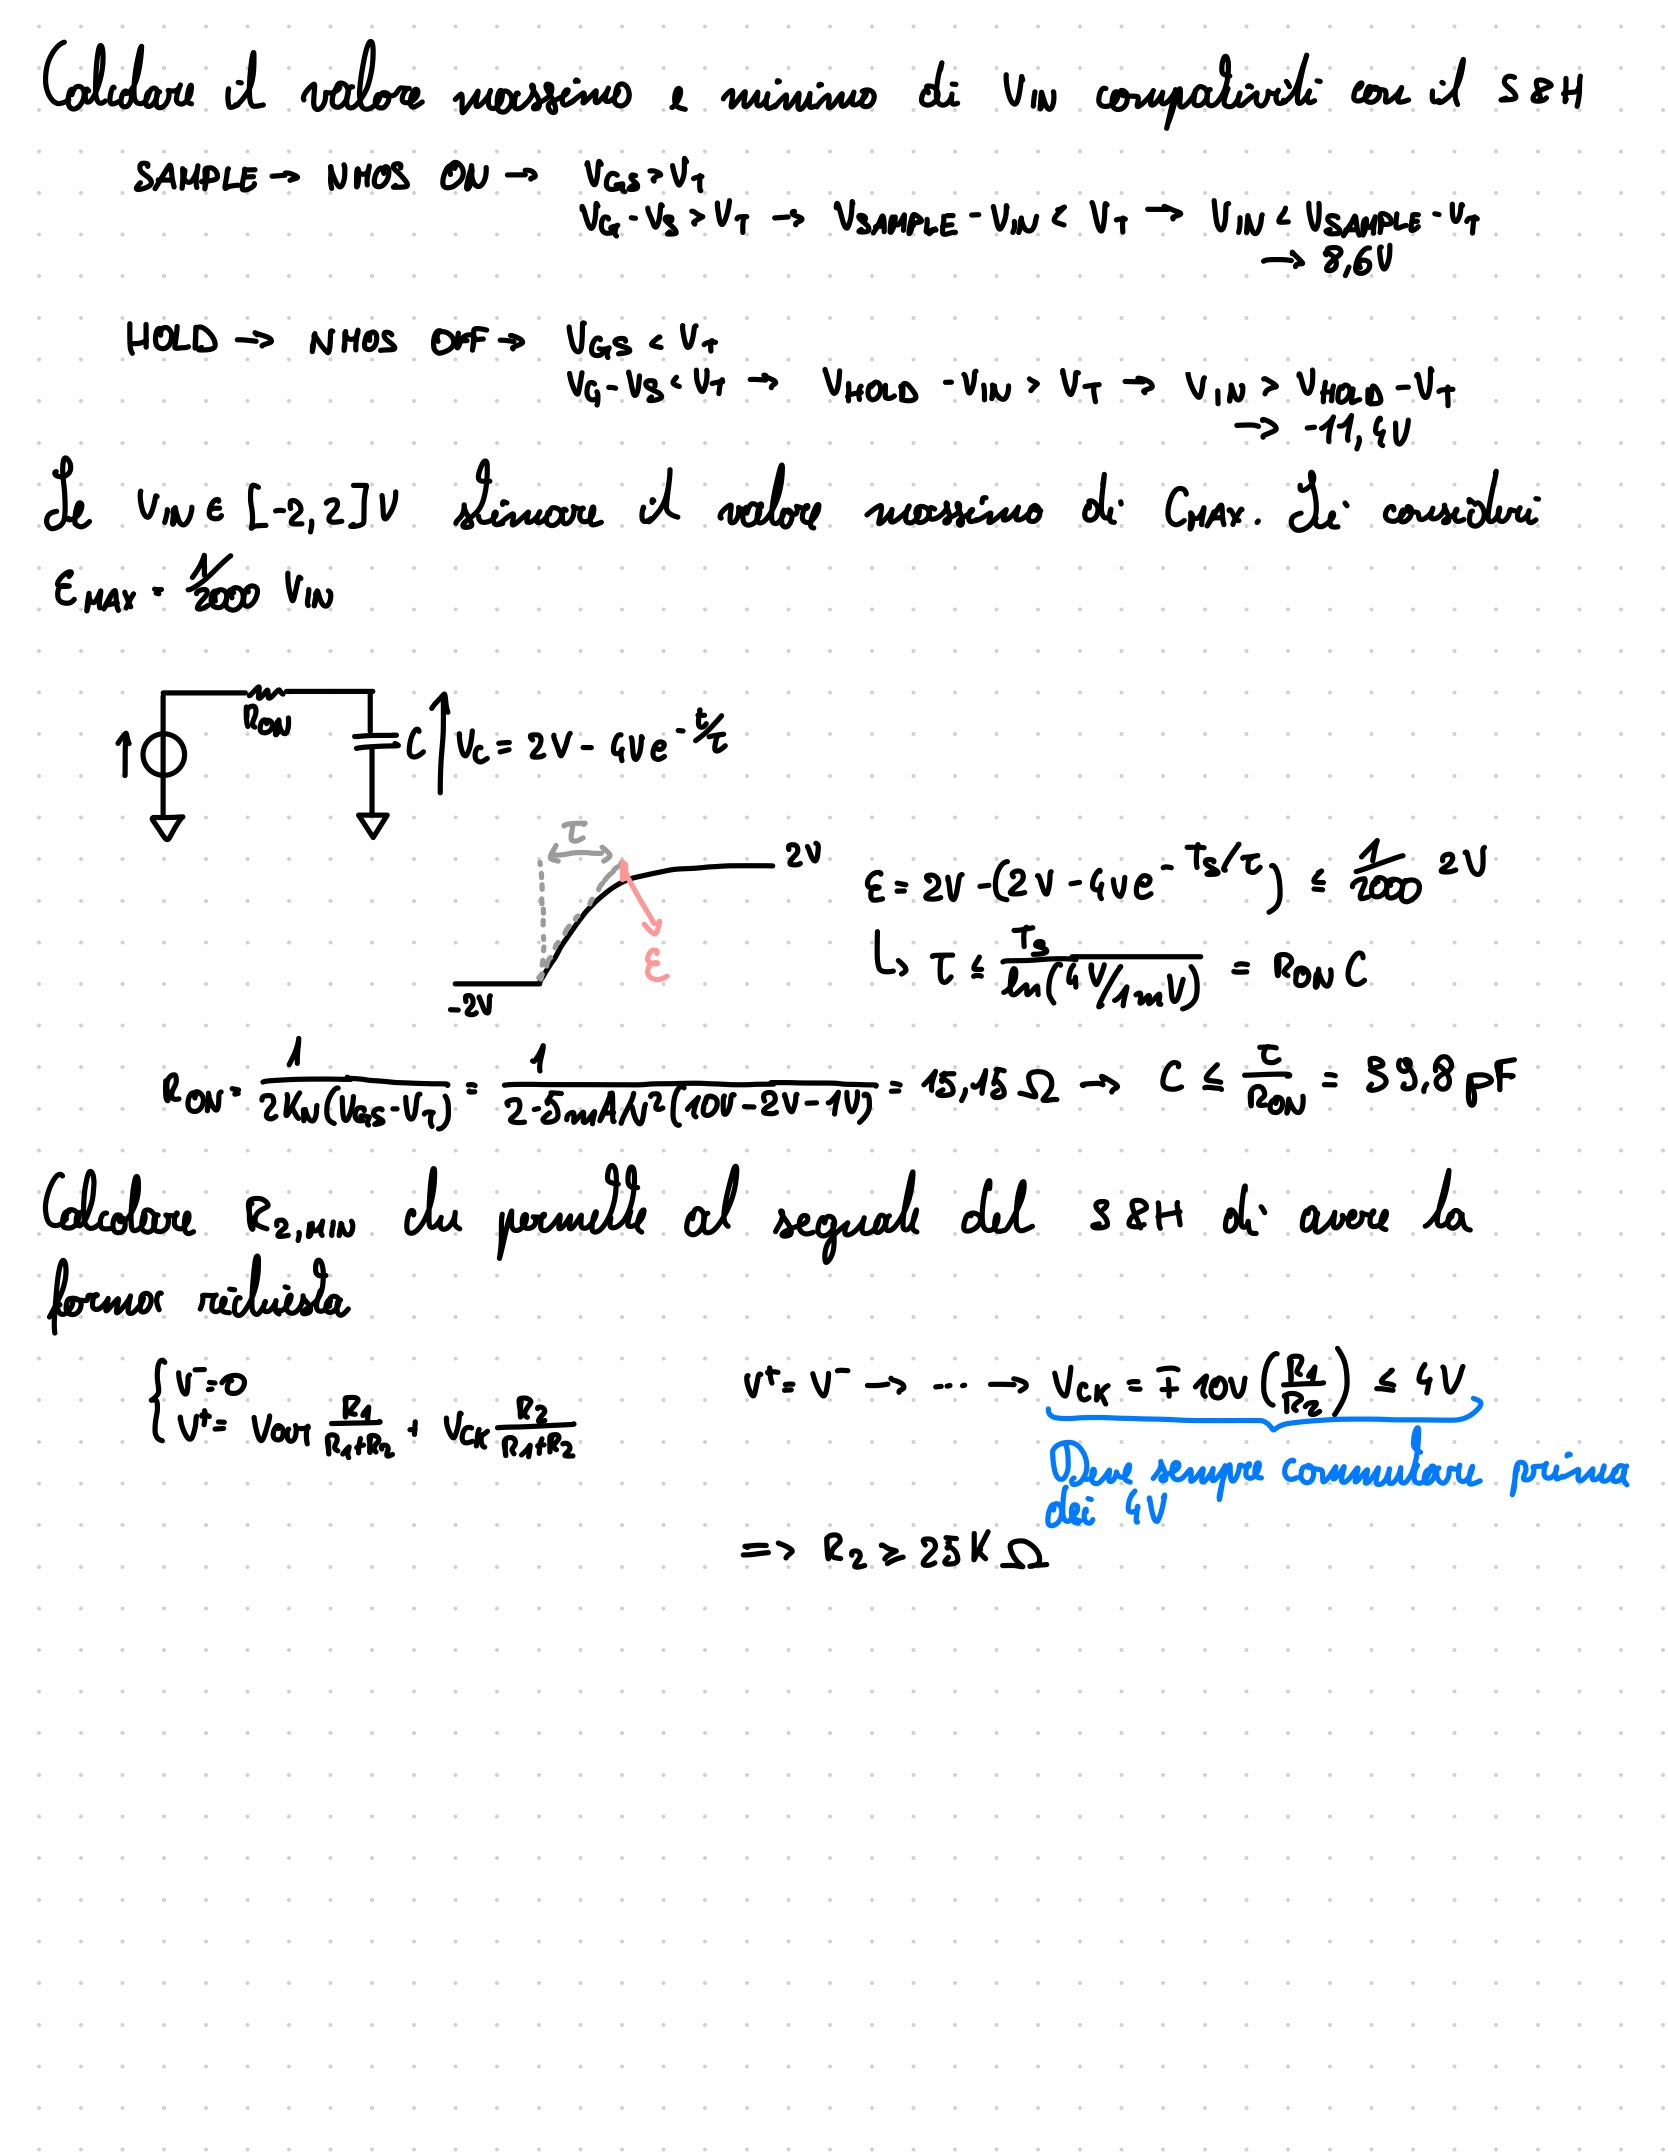 Calcolare il valore massimo e minimo di VIN compatibili con il S&H
SAMPLE → NMOS ON → VGS > VT
VG - VS > VT → VSAMPLE - VIN < VT → VIN < VSAMPLE - VT
→ 8,6V
HOLD → NMOS OFF → VGS < VT
VG - VS < VT → VHOLD - VIN > VT → VIN > VHOLD - VT
→ -11,4V
Se VIN ∈ [-2,2]V stimare il valore massimo di CMAX. Si consideri
εMAX = 1/2000 VIN
RON
C
VC = 2V - 4V e^-t/τ
τ
2V
ε
-2V
ε = 2V - (2V - 4V e^-TS/τ) ≤ 1/2000 2V
↳ τ ≤ TS / ln(4V/1mV) = RON C
RON = 1 / 2KN(VGS-VT) = 1 / 2·5mA/V²(10V-2V-1V) = 15,15 Ω → C ≤ τ/RON = 39,8 pF
Calcolare R2,MIN che permette al segnale del S&H di avere la
forma richiesta
{ V⁻ = 0
V⁺ = VOUT R1/R1+R2 + VCK R2/R1+R2
V⁺ = V⁻ → ... → VCK = ∓ 10V (R1/R2) ≤ 4V
Deve sempre commutare prima
dei 4V
=> R2 ≥ 25KΩ